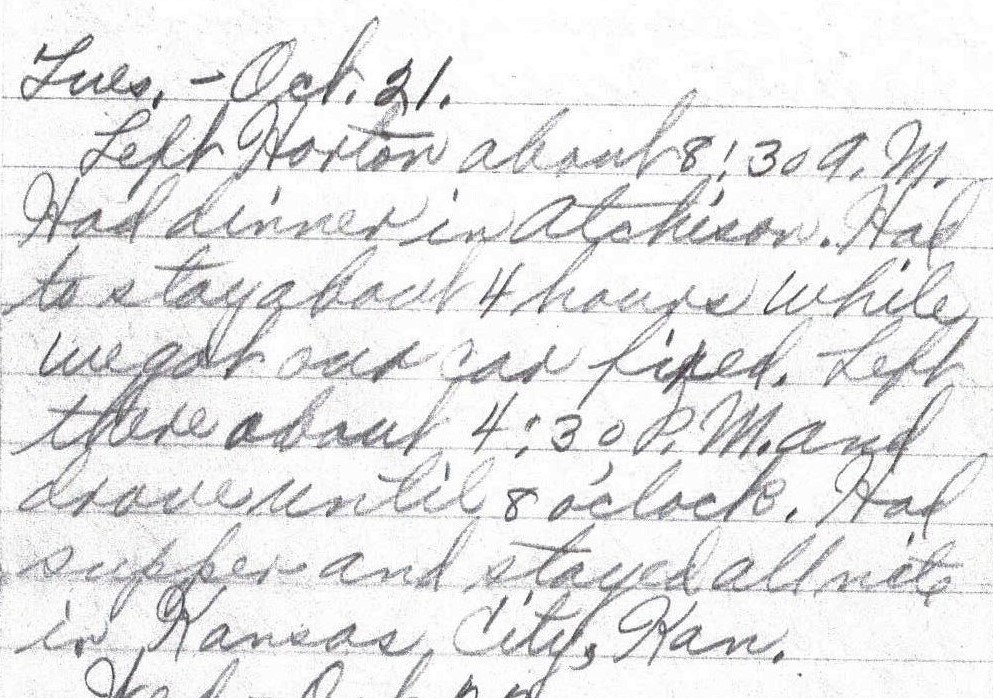 Tues. - Oct. 21.
Left Horton about 8:30 A.M.
Had dinner in Atchison. Had
to stay about 4 hours while
we got our car fixed. Left
there about 4:30 P.M. and
drove until 8 o'clock. Had
supper and stayed all nite
in Kansas City, Kan.